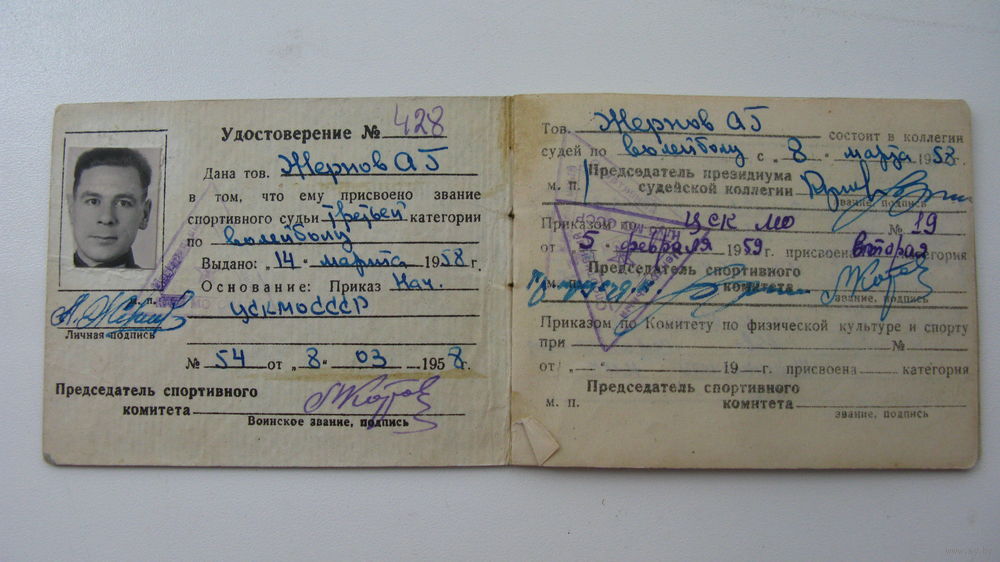 Удостоверение № 428
Дана тов. Жернов А Г
в том, что ему присвоено звание
спортивного судьи третьей категории
по волейболу
Выдано: „14" марта 1958 г.
Основание: Приказ Нач.
ЦСКМОСССР
№ 54 от „8" 03 1958 г.
Председатель спортивного
комитета
Воинское звание, подпись
м. п.
Личная подпись
Тов. Жернов А Г состоит в коллегии
судей по волейболу с „8" марта 1958 г.
Председатель президиума
м. п. судейской коллегии
звание, подпись
Приказом ЦСК МО № 19
от „5" февраля 1959 г. присвоена вторая категория
Председатель спортивного
м. п. комитета
звание, подпись
Приказом по Комитету по физической культуре и спорту
при №
от „ " 19 г. присвоена категория
Председатель спортивного
м. п. комитета
звание, подпись